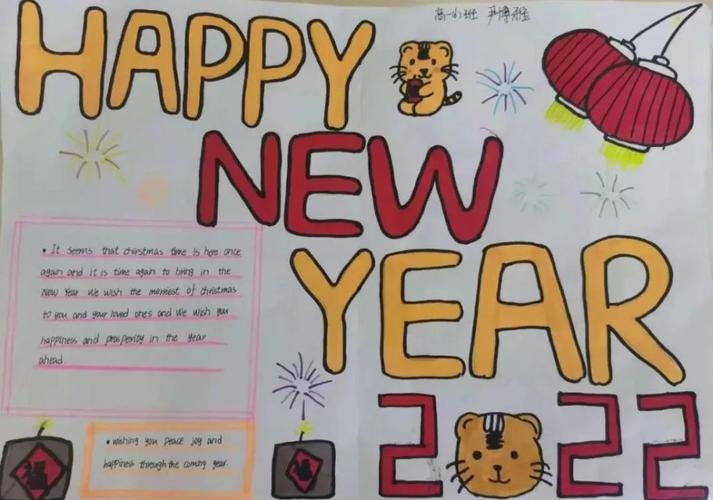 HAPPY
NEW
YEAR
2 22
• It seems that chirstmas time is here once
again and it is time again to bring in the
New Year We wish the merriest of christmas
to you and your loved ones and We wish you
happiness and prosperity in the year
ahead.
• wishing you peace joy and
happiness through the coming year.
福
福